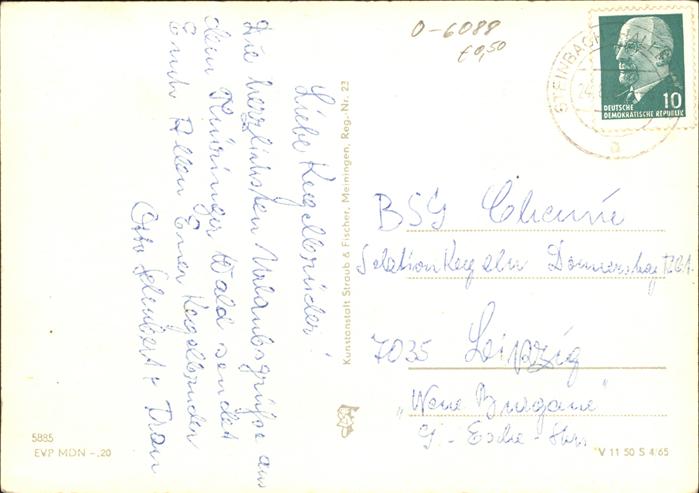 Liebe Kegelbrüder!
Die herzlichsten Urlaubsgrüße aus
dem Thüringer Wald sendet
Euch Allen Euer Kegelbruder
Otto Schubert + Frau
O-6088
€ 0,50
STEINBACH-HALL
10
DEUTSCHE
DEMOKRATISCHE REPUBLIK
a
Kunstanstalt Straub & Fischer, Meiningen, Reg.-Nr. 23
BSG Chemie
Sektion Kegeln Donnerstag
7035 Leipzig
"Neue
G.- -Hrs
5885
EVP MDN -,20
V 11 50 S 4/65